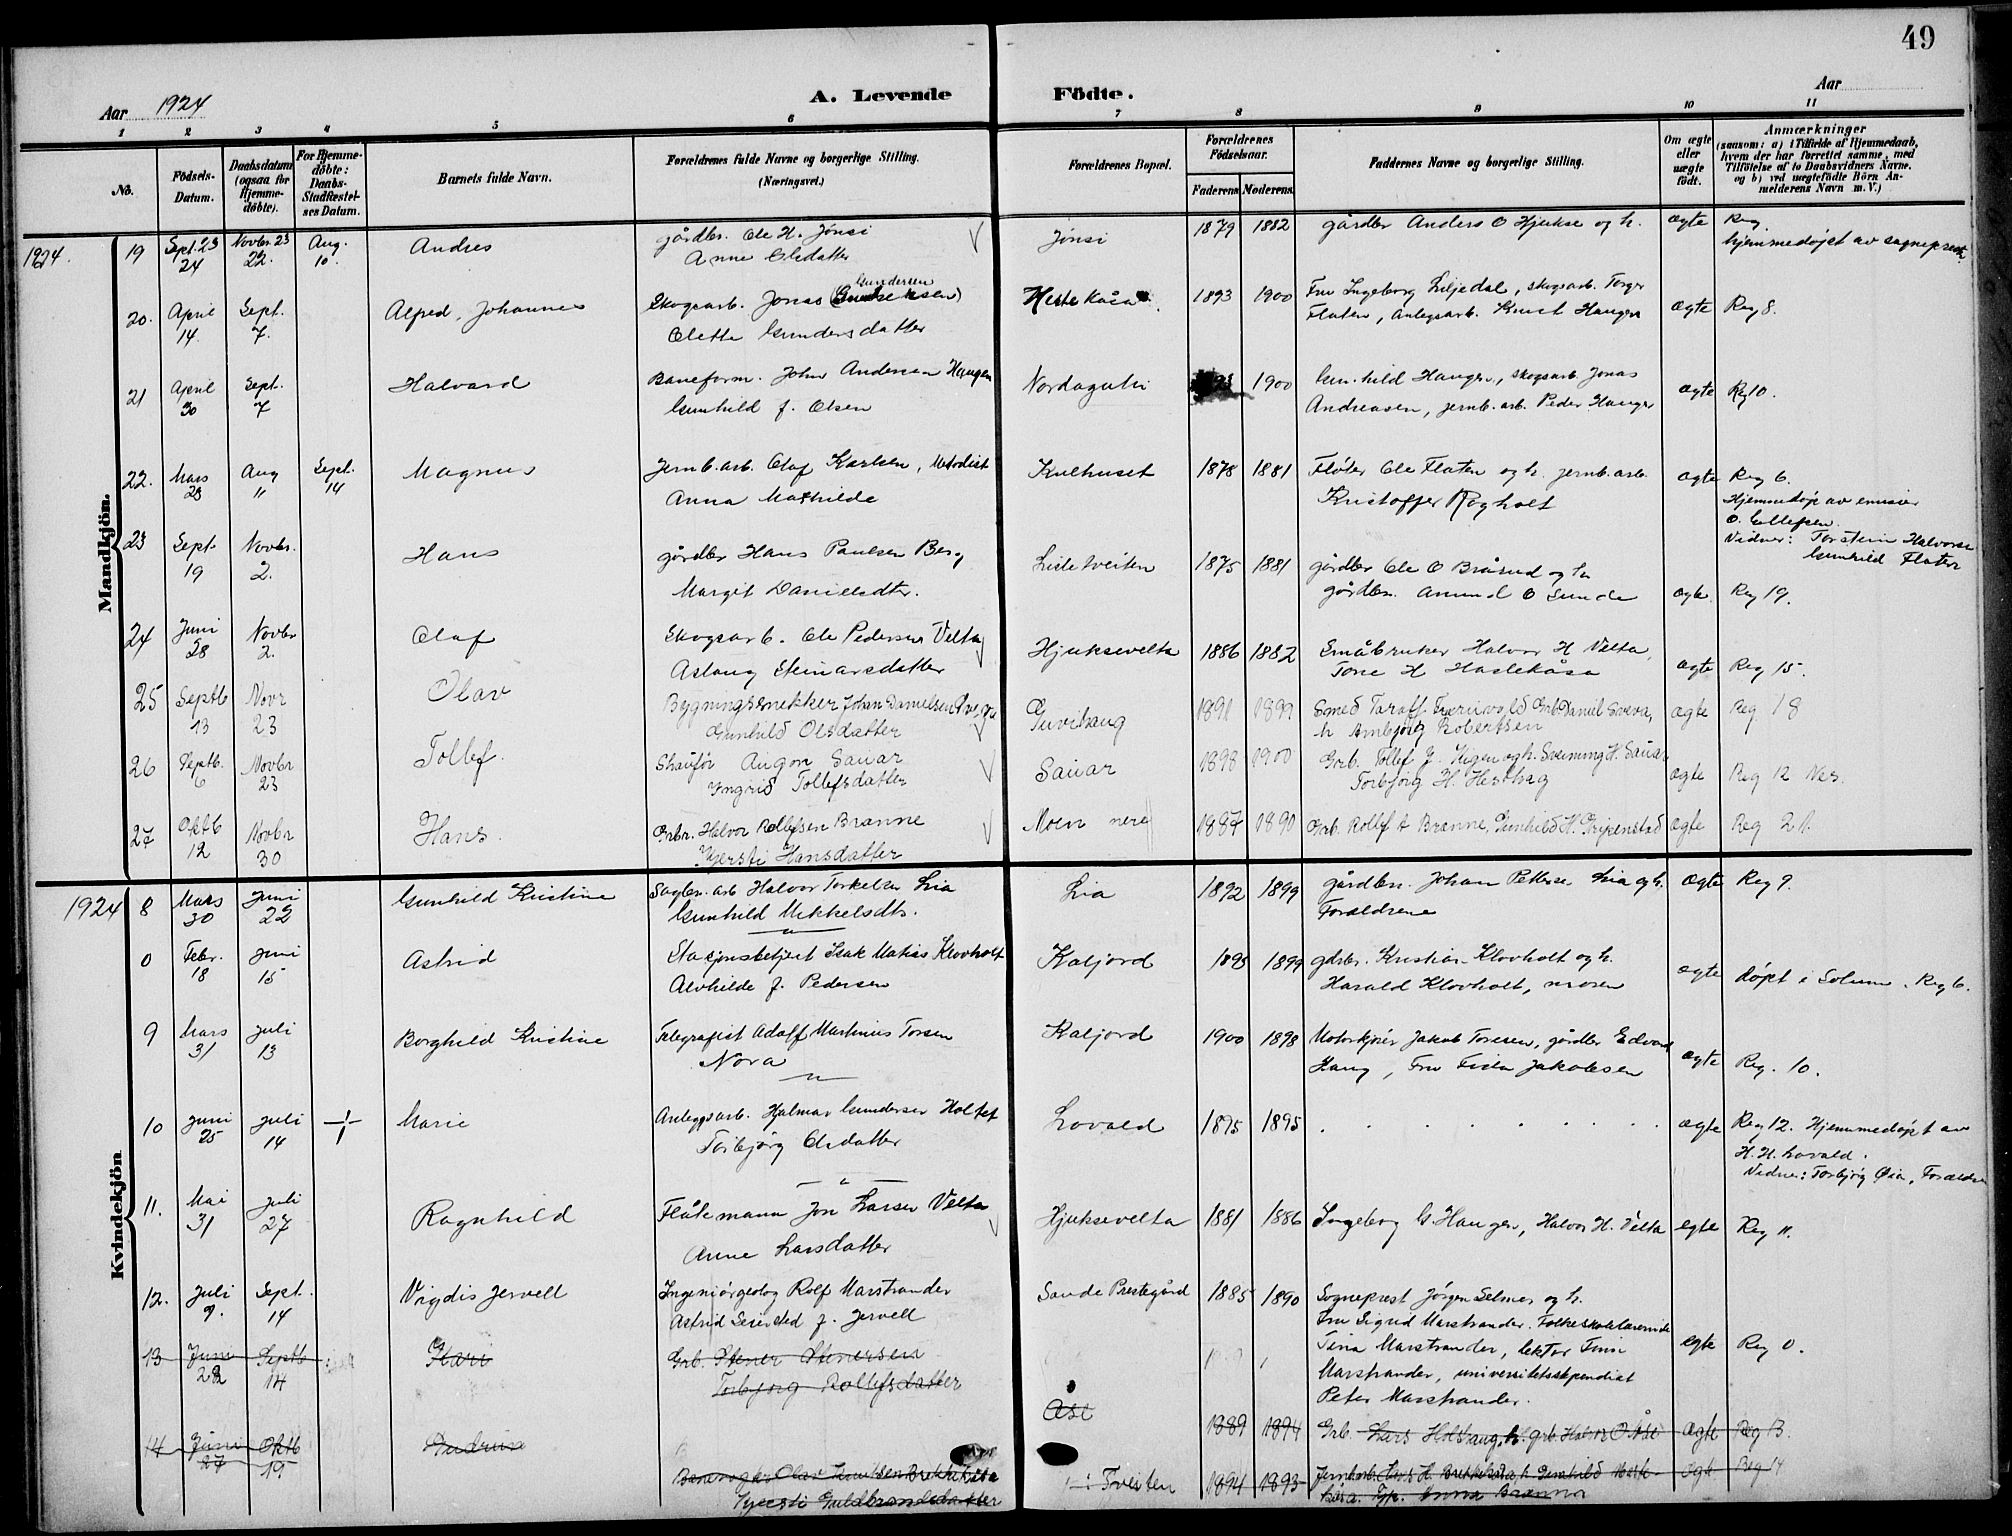 49
Aar 1924
A. Levende
Födte.
Aar
1 2 3 4 5 6 7 8 9 10 11
No.
Födsels-Datum.
Daabsdatum (ogsaa for Hjemme-döbte).
For Hjemme-döbte: Daabs-Stadfæstel-ses Datum.
Barnets fulde Navn.
Forældrenes fulde Navne og borgerlige Stilling. (Næringsvei.)
Forældrenes Bopæl.
Forældrenes Födselsaar.
Faderens. Moderens.
Faddernes Navne og borgerlige Stilling.
Om ægte eller uægte födt.
Anmærkninger (saasom: a) i Tilfælde af Hjemmedaab, hvem der har forrettet samme, med Tilföielse af to Daabsvidners Navne, og b) ved uægtefödte Börn An-melderens Navn m. V.)
Mandkjön.
1924. 19 Sept. 23 24 Novbr. 23 22. Aug. 10. Andres
gårdbr. Ole H. Jønsi
Anne Olsdatter
Jønsi 1879 1882 gårdbr Anders O Hjukse og h. ægte Reg
hjemmedøpt av sogneprest
20. April 14. Sept. 7. Alfred, Johannes
Skogsarb. Jonas Gundersen
Olette Gundersdatter
Hestekåsa 1893 1900 Fru Ingeborg Liljedal, skogsarb. Torger
Flaten, anlegsarb. Knut Haugen ægte Reg 8.
21 April 30 Sept. 7 Halvard
Baneform. John Andersen Haugen
Gunhild f. Olsen
Nordagutu 1900 Gunhild Haugen, skogsarb Jonas
Andreasen, jernb.arb. Peder Haugen ægte Reg 10.
22. Mars 28 Aug 11 Sept. 14 Magnus
Jernb.arb. Olaf Karlsen, Metodist
Anna Mathilde
Kulhuset 1878 1881 Fløter Ole Flaten og h. jernb.arb.
Kristoffer Rogholt ægte Reg 6.
Hjemmedøp av emissær
O. Ellefsen.
Vidner: Torstein Halvorsen
Gunhild Flaten
23 Sept. 19 Novbr. 2. Hans
gårdbr Hans Paulsen Berg
Margit Danielsdtr.
Lisletveiten 1875 1881 gårdbr Ole O Bråsud og h
gårdbr. Amund O Sunde ægte. Reg 19.
24 Juni 28 Novbr 2. Olaf
Skogsarb. Ole Pedersen Velta
Aslaug Steinarsdatter
Hjuksevelta 1886 1882 Småbruker Halvor H Velta,
Tone H Haslekåsa ægte Reg 15.
25 Septb 13 Novr 23 Olav
Bygningssnekker Johan Danielsen
Gunhild Olsdatter
Guvihaug 1891 1899 Smed Taralf Grb Daniel Sveva,
h Ambjørg Robertsen ægte Reg 18
26 Septb. 6 Novbr 23 Tollef.
Shaufør Augon Sauar
Yngrid Tollefsdatter
Sauar 1898 1900 Grb. Tollef J. og h. Svenning H. Sauar
Torbjørg H. Hesthag ægte Reg 12 Nes.
27 Oktb 12 Novbr 30 Hans.
Grbr. Halvor Rollefsen Brænne
Kjersti Hansdatter
Moen nere 1887 1890 Grb. Rollef A Brænne, Gunhild H. Gripenstad ægte Reg 21.
Kvindekjön
1924 8 Mars 30 Juni 22 Gunhild Kristine
Sagbr. arb Halvor Torkelsen Lia
Gunhild Mikkelsdtr.
Lia 1892 1899 gårdbr. Johan Petterse Lia og h.
Foreldrene ægte Reg 9.
0 Febr. 18 Juni 15 Astrid
Stasjonsbetjent Isak Matias Klovholt
Alvhilde f. Pedersen
Kaljord 1895 1899 gdsbr. Kristian Klovholt og h.
Harald Klovholt, moren ægte døpt i Solum. Reg 6.
9 Mars 31 Juli 13 Borghild Kristine
Telegrafist Adolf Martinius Torsen
Nora
Kaljord 1900 1898 Motorkjører Jakob Toresen, gårdbr Edvard
Haug, Fru Jakobsen ægte Reg. 10.
10 Juni 25 Juli 14 Marie
Anleggsarb. Hjalmar Gundersen Holtet
Torbjørg Olsdatter
Lovald 1895 1895 ægte Reg 12. Hjemmedøpt av
H. H. Lovald.
Vidner: Torbjørg Øia, Foreldre
11. Mai 31 Juli 27 Ragnhild
Flåtemann Jon Larsen Velta
Anne Larsdatter
Hjuksevelta 1881 1886 Ingeborg G. Haugen, Halvor H. Velta egte Reg 11.
12. Juli 9. Sept. 14 Vigdis Jervell
Ingeniørgeolog Rolf Marstrander
Astrid Seiersted f. Jervell
Sande Prestegård 1885 1890 Sogneprest Jørgen Selmer og h.
Fru Sigrid Marstrander. Folkeskolelærerinde
Tina Marstrander, lektor Finn
Marstrander, universitetsstipendiat
Peter Marstrander. egte Reg 0.
13 Juni 22 Septb 14 Kari
Grb. Stener Stenersen
Torbjørg Rollefsdatter
Ase 1889 1894 Grb Lars Holthaug, h. grb. Halvor O. Åse ægte Reg 13.
14 Juni 27 Oktb 19 Gudrun
Banevogter Olav Knutsen Brekkhøta
Kjersti Guldbrandsdatter
Tveiten 1894 1893 Jernbarb. Lars H. Brekkhøta, h. Gunhild
Anna Brænna ægte Reg 14